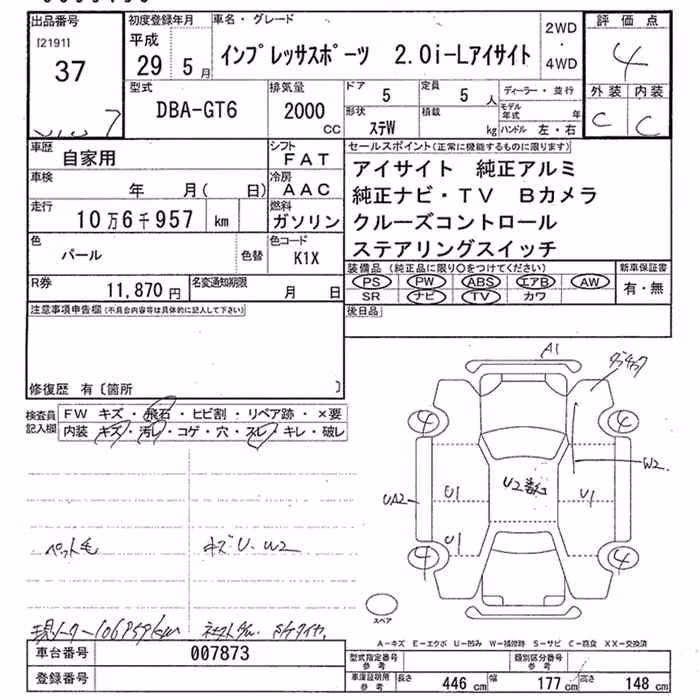 出品番号 初度登録年月 車名・グレード 評価点
[2191] 37
平成 29 5月
インプレッサスポーツ 2.0i-Lアイサイト
2WD ・ 4WD
4
型式 排気量 ドア 5 定員 5 人 ディーラー・並行 外装 内装
DBA-GT6 2000 CC
形状 ステW 積載 kg
モデル年式 年
ハンドル 左・右
C C
車歴 自家用 シフト FAT
セールスポイント(正常に機能するものに限ります)
車検 年 月( 日) 冷房 AAC
アイサイト 純正アルミ
純正ナビ・TV Bカメラ
走行 10万6千957 km 燃料 ガソリン
クルーズコントロール
ステアリングスイッチ
色 パール 色替 色コード K1X
装備品(純正品に限り○をつけてください) 新車保証書
PS PW ABS エアB AW 有・無
SR ナビ TV カワ
R券 11,870円 名変通知期限 月 日
後日品
注意事項申告欄(不具合内容等は具体的に記入して下さい)
修復歴 有〔箇所 〕
検査員記入欄 FW キズ・飛石・ヒビ割・リペア跡・×要
内装 キズ・汚レ・コゲ・穴・スレ・キレ・破レ
A1
4 4
W2
UA2 U1 U2 U1
U1
4 4
ペット毛 キズU・W2
スペア
A-キズ E-エクボ U-凹み W-補修跡 S-サビ C-腐食 XX-交換済
車台番号 007873
登録番号
型式指定番号参考 類別区分番号参考
車庫証明用参考 長さ 446cm 幅 177cm 高さ 148cm